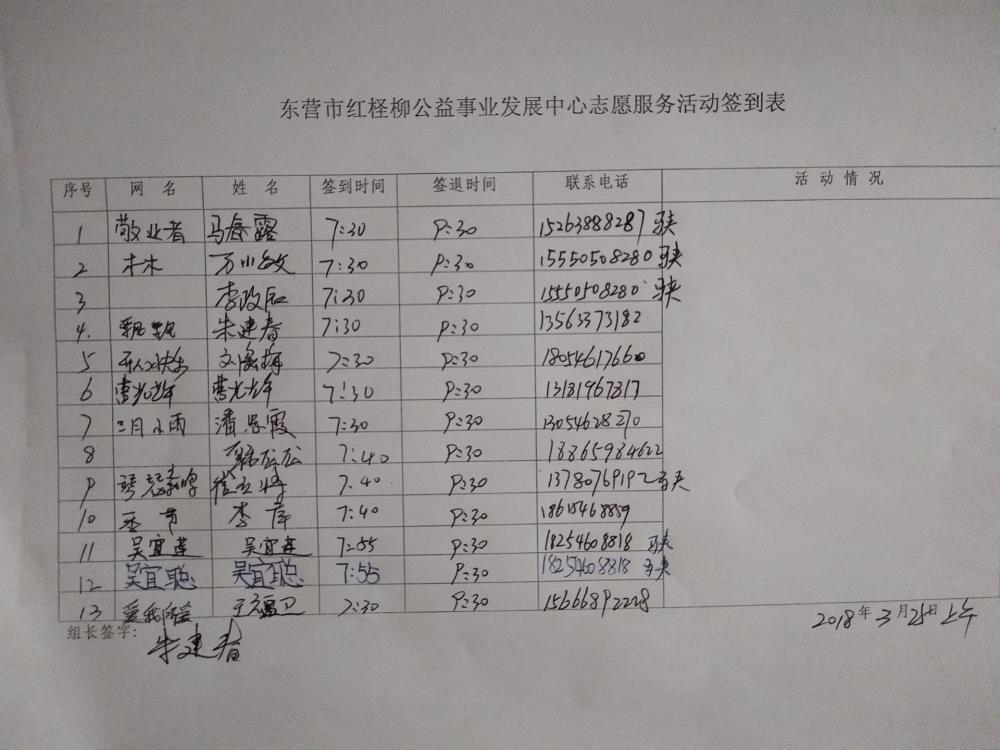 东营市红柽柳公益事业发展中心志愿服务活动签到表
序号 网名 姓名 签到时间 签退时间 联系电话 活动情况
1 敬业者 马春露 7:30 9:30 15263888287
2 木木 万小敏 7:30 9:30 15550508280
3 李政 7:30 9:30 15550508280
4. 飘飘 朱建春 7:30 9:30 13563373182
5 7:30 9:30 18054617660
6 曹光年 曹光年 7:30 9:30 13181967317
7 三月小雨 潘思霞 7:30 9:30 13054628270
8 7:40 9:30 18865984622
9 7:40 9:30 13780769192
10 季节 李萍 7:40 9:30 18615468859
11 吴宜莲 吴宜莲 7:55 9:30 18254608818
12 吴宜聪 吴宜聪 7:55 9:30 18254608818
13 7:30 9:30 15666892228
组长签字:
朱建春
2018年3月25日上午